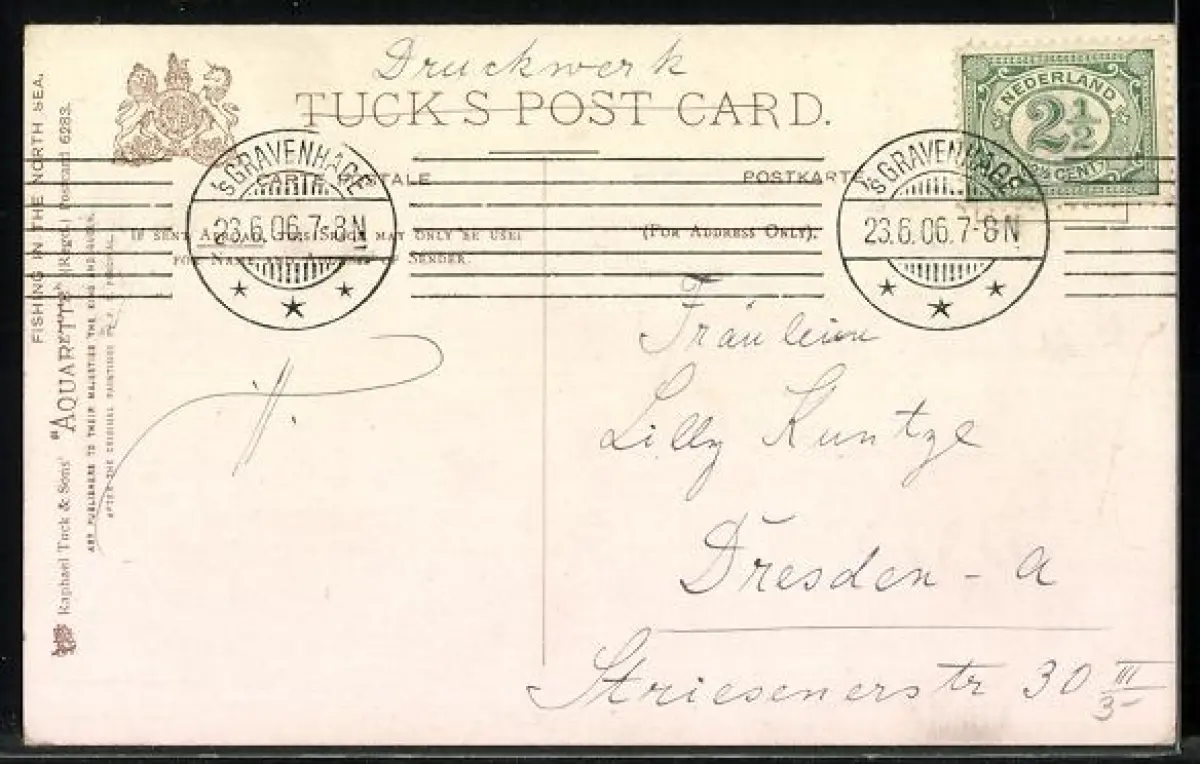 Druckwerk
TUCK'S POST CARD.
CARTE POSTALE
POSTKARTE
IF SENT ABROAD, THIS SPACE MAY ONLY BE USED
FOR NAME AND ADDRESS OF SENDER.
(FOR ADDRESS ONLY).
NEDERLAND
2½
CENT
'S GRAVENHAGE
23.6.06.7-8N
'S GRAVENHAGE
23.6.06.7-8N
FISHING IN THE NORTH SEA.
Raphael Tuck & Sons' "AQUARETTE" (Regd.) Postcard 6283.
ART PUBLISHERS TO THEIR MAJESTIES THE KING AND QUEEN.
AFTER THE ORIGINAL PAINTINGS BY
H.
Fräulein
Lilly Kuntze
Dresden - A
Striesenerstr 30 III/3